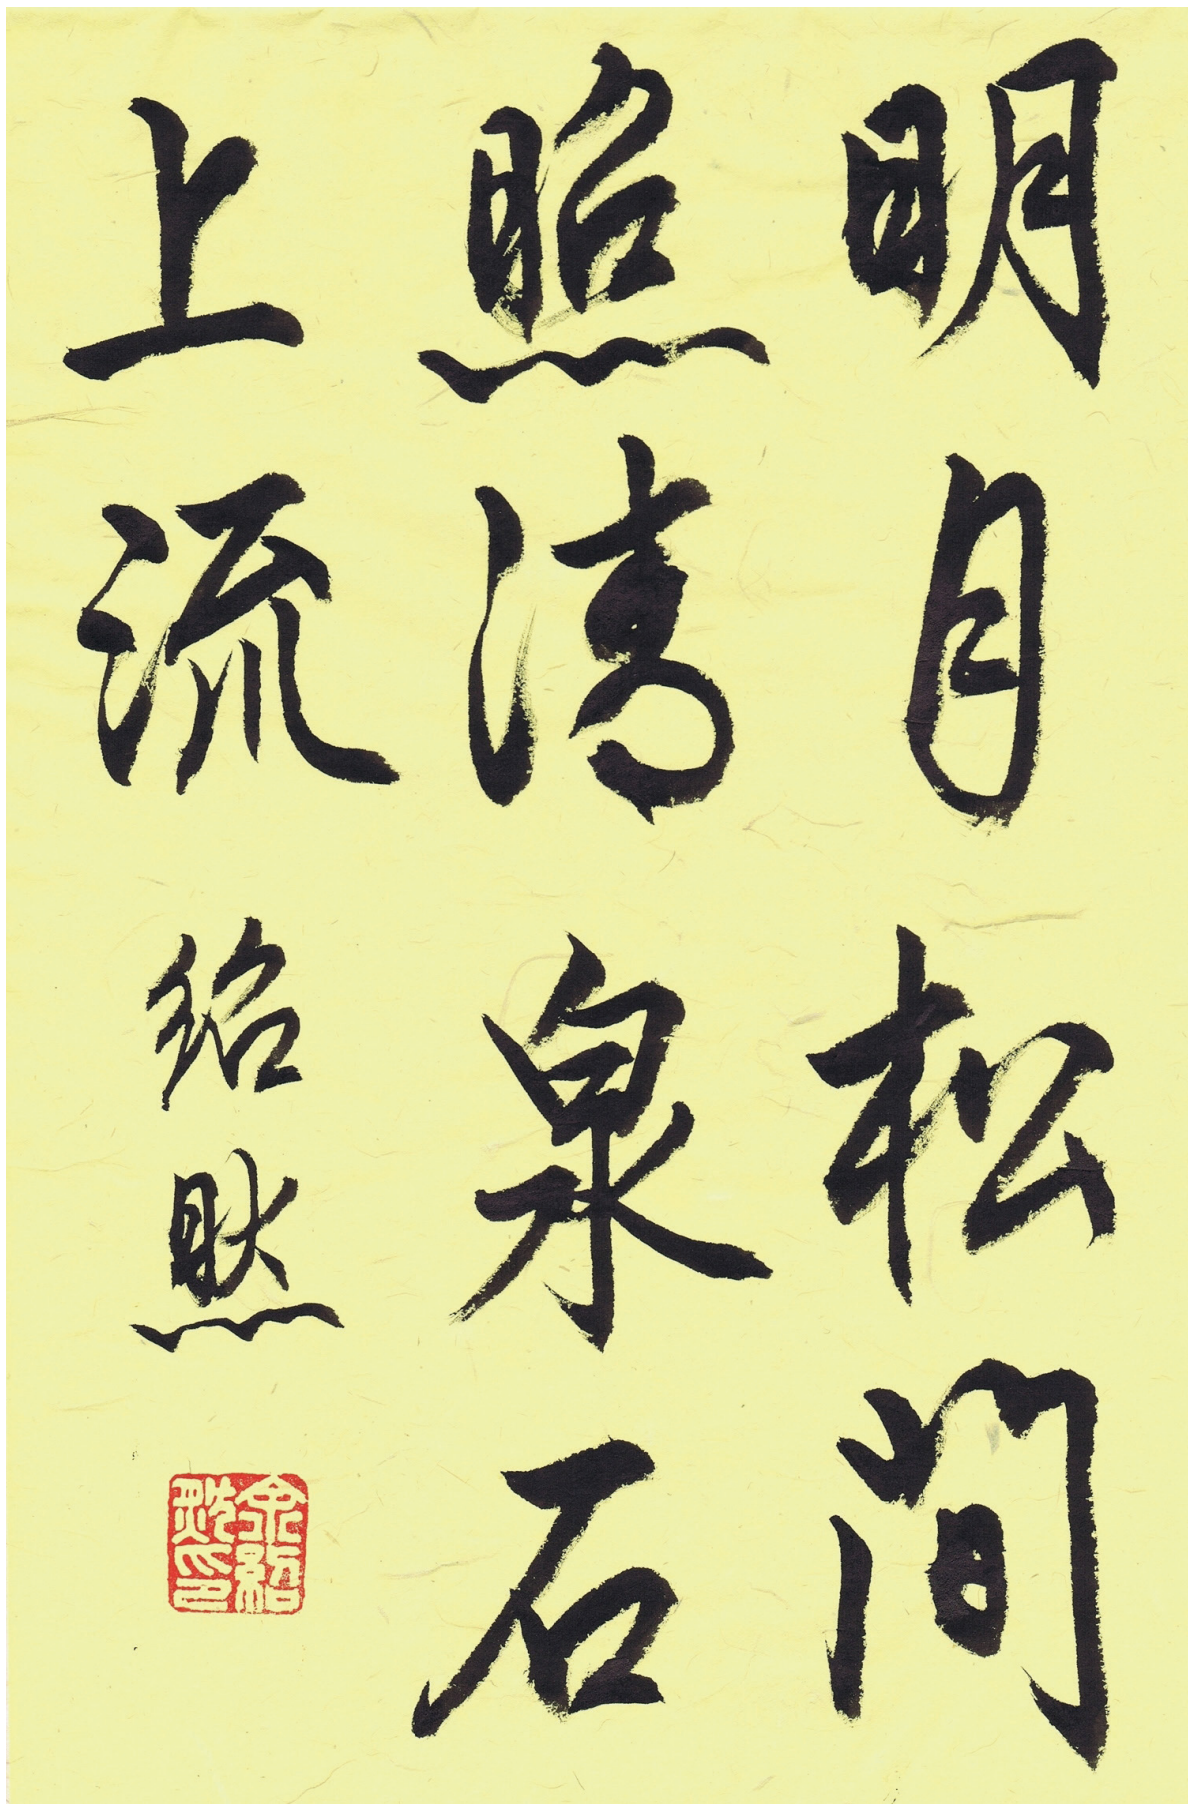 明月松間
照清泉石
上流 紹然
余紹然印